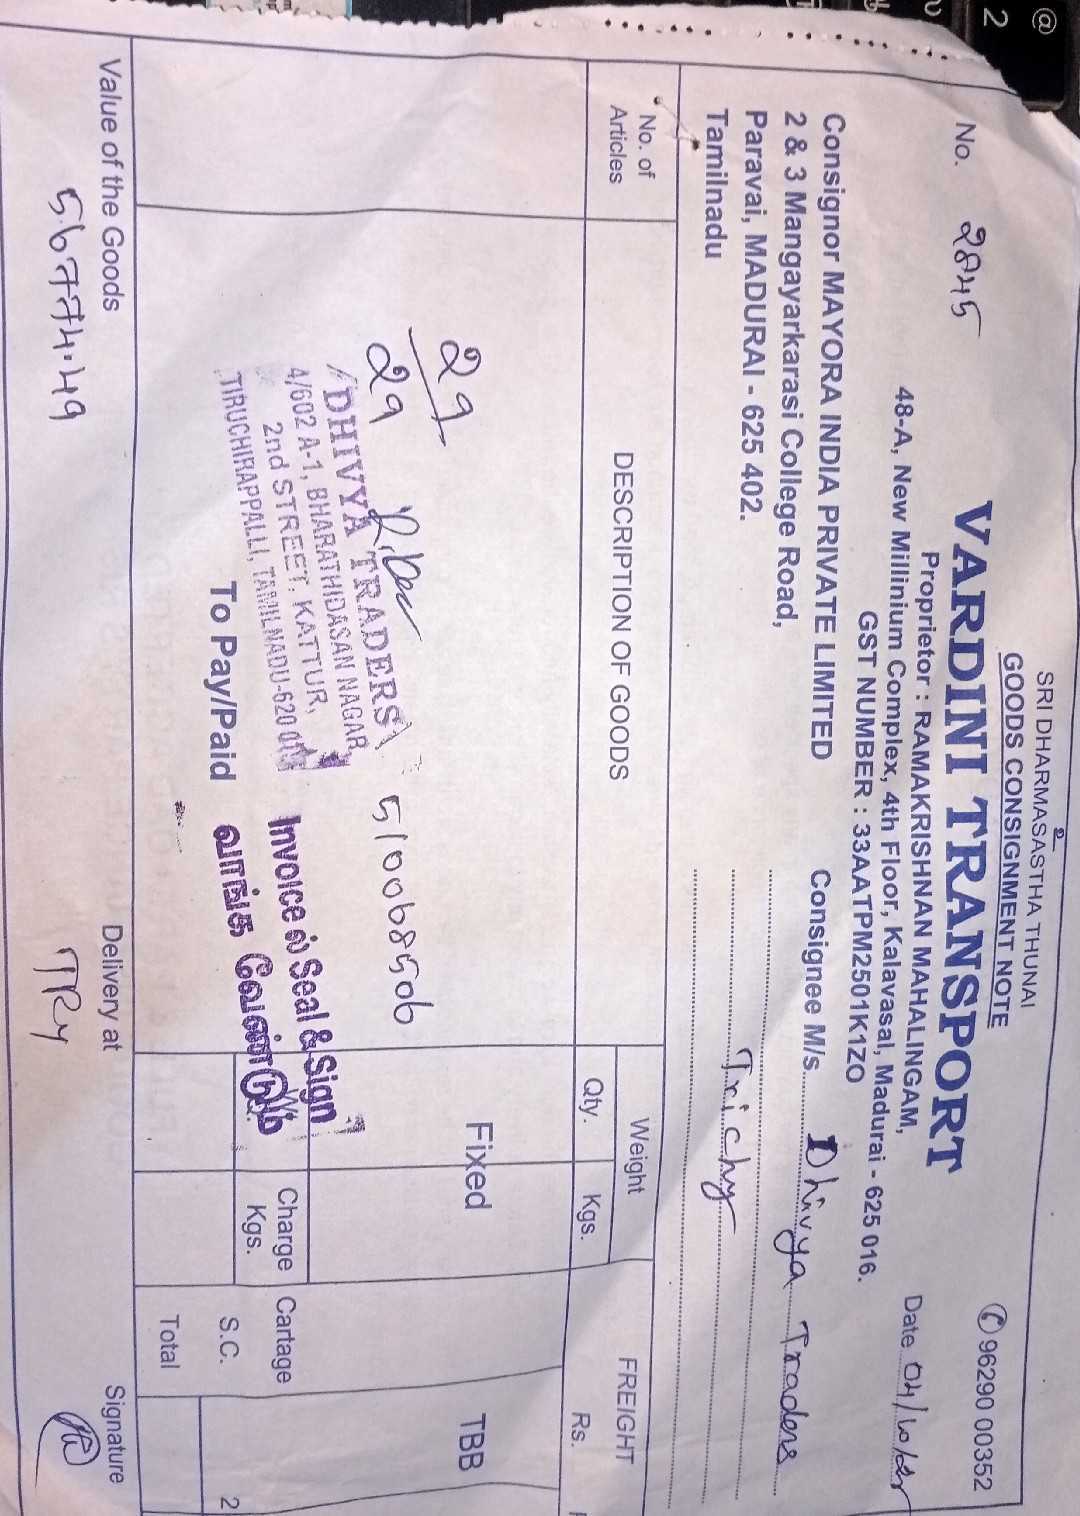 SRI DHARMASASTHA THUNAI
GOODS CONSIGNMENT NOTE
✆ 96290 00352
VARDINI TRANSPORT
No. 2845
Proprietor : RAMAKRISHNAN MAHALINGAM,
48-A, New Millinium Complex, 4th Floor, Kalavasal, Madurai - 625 016.
Date
GST NUMBER : 33AATPM2501K1ZO
Consignor MAYORA INDIA PRIVATE LIMITED
2 & 3 Mangayarkarasi College Road,
Paravai, MADURAI - 625 402.
Tamilnadu
Consignee M/s. Dhivya Traders
Trichy
No. of Articles
DESCRIPTION OF GOODS
Weight
Qty. Kgs.
FREIGHT
Rs.
29
29
Fixed
TBB
510068506
DHIVYA TRADERS
4/602 A-1, BHARATHIDASAN NAGAR,
2nd STREET, KATTUR,
TIRUCHIRAPPALLI, TAMILNADU-620
Invoice ல் Seal & Sign
வாங்க வேண்டும்
To Pay/Paid
Charge Kgs.
Cartage
S.C. 2
Total
Value of the Goods
56774.49
Delivery at
TRY
Signature
@
2